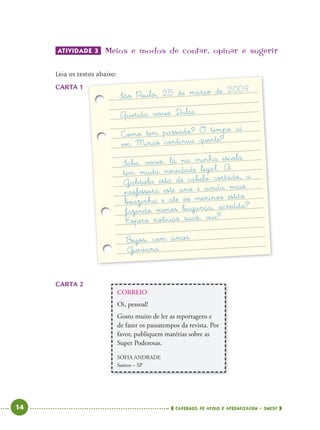 ATIVIDADE 3 Meios e modos de contar, opinar e sugerir
Leia os textos abaixo:
CARTA 1
São Paulo, 25 de março de 2009.
Querida vovó Dulce,
Como tem passado? O tempo aí
em Minas continua quente?
Sabe, vovó, lá na minha escola
tem muita novidade legal. A
Gabriela está de cabelo cortado, a
professora este ano é ainda mais
boazinha e até os meninos estão
fazendo menos bagunça, acredita?
Espero notícias suas, viu?
Beijos, com amor
Giovana
CARTA 2
CORREIO
Oi, pessoal!
Gosto muito de ler as reportagens e
de fazer os passatempos da revista. Por
favor, publiquem matérias sobre as
Super Poderosas.
SOFIA ANDRADE
Santos – SP
14
CADERNOS DE APOIO E APRENDIZAGEM - SMESP